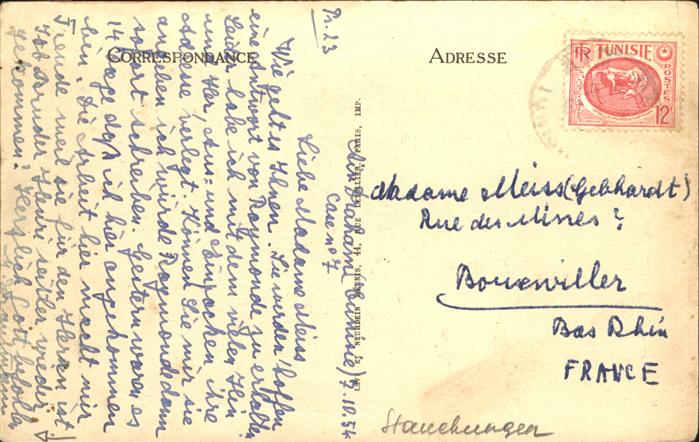 CORRESPONDANCE
ADRESSE
RF TUNISIE
POSTES
12F
Madame Meiss (Gebhardt)
Rue des Mines ?
Bouxwiller
Bas Rhin
FRANCE
Stauchungen
No. 23
(Tunisie) 7.10.54
Case no 7
Liebe Madame Meiss
Wie geht es Ihnen. Sie werden hoffen
eine Antwort von Raymonde zu erhalten
Leider habe ich mit dem vielen Hin
und Her, Aus= und Einpacken ihre
Adresse verlegt. Können Sie mir sie
angeben ich würde Raymonde dann
sofort schreiben. Gestern waren es
14 Tage dass ich hier angekommen
bin. Die Arbeit hier macht mir
Freude weil sie für den Herrn ist
Ist Bruder Henri seither wieder
gekommen? Herzlich Gott befohlen
LEVY ET NEURDEIN RÉUNIS, 44, RUE LETELLIER, PARIS, IMP.